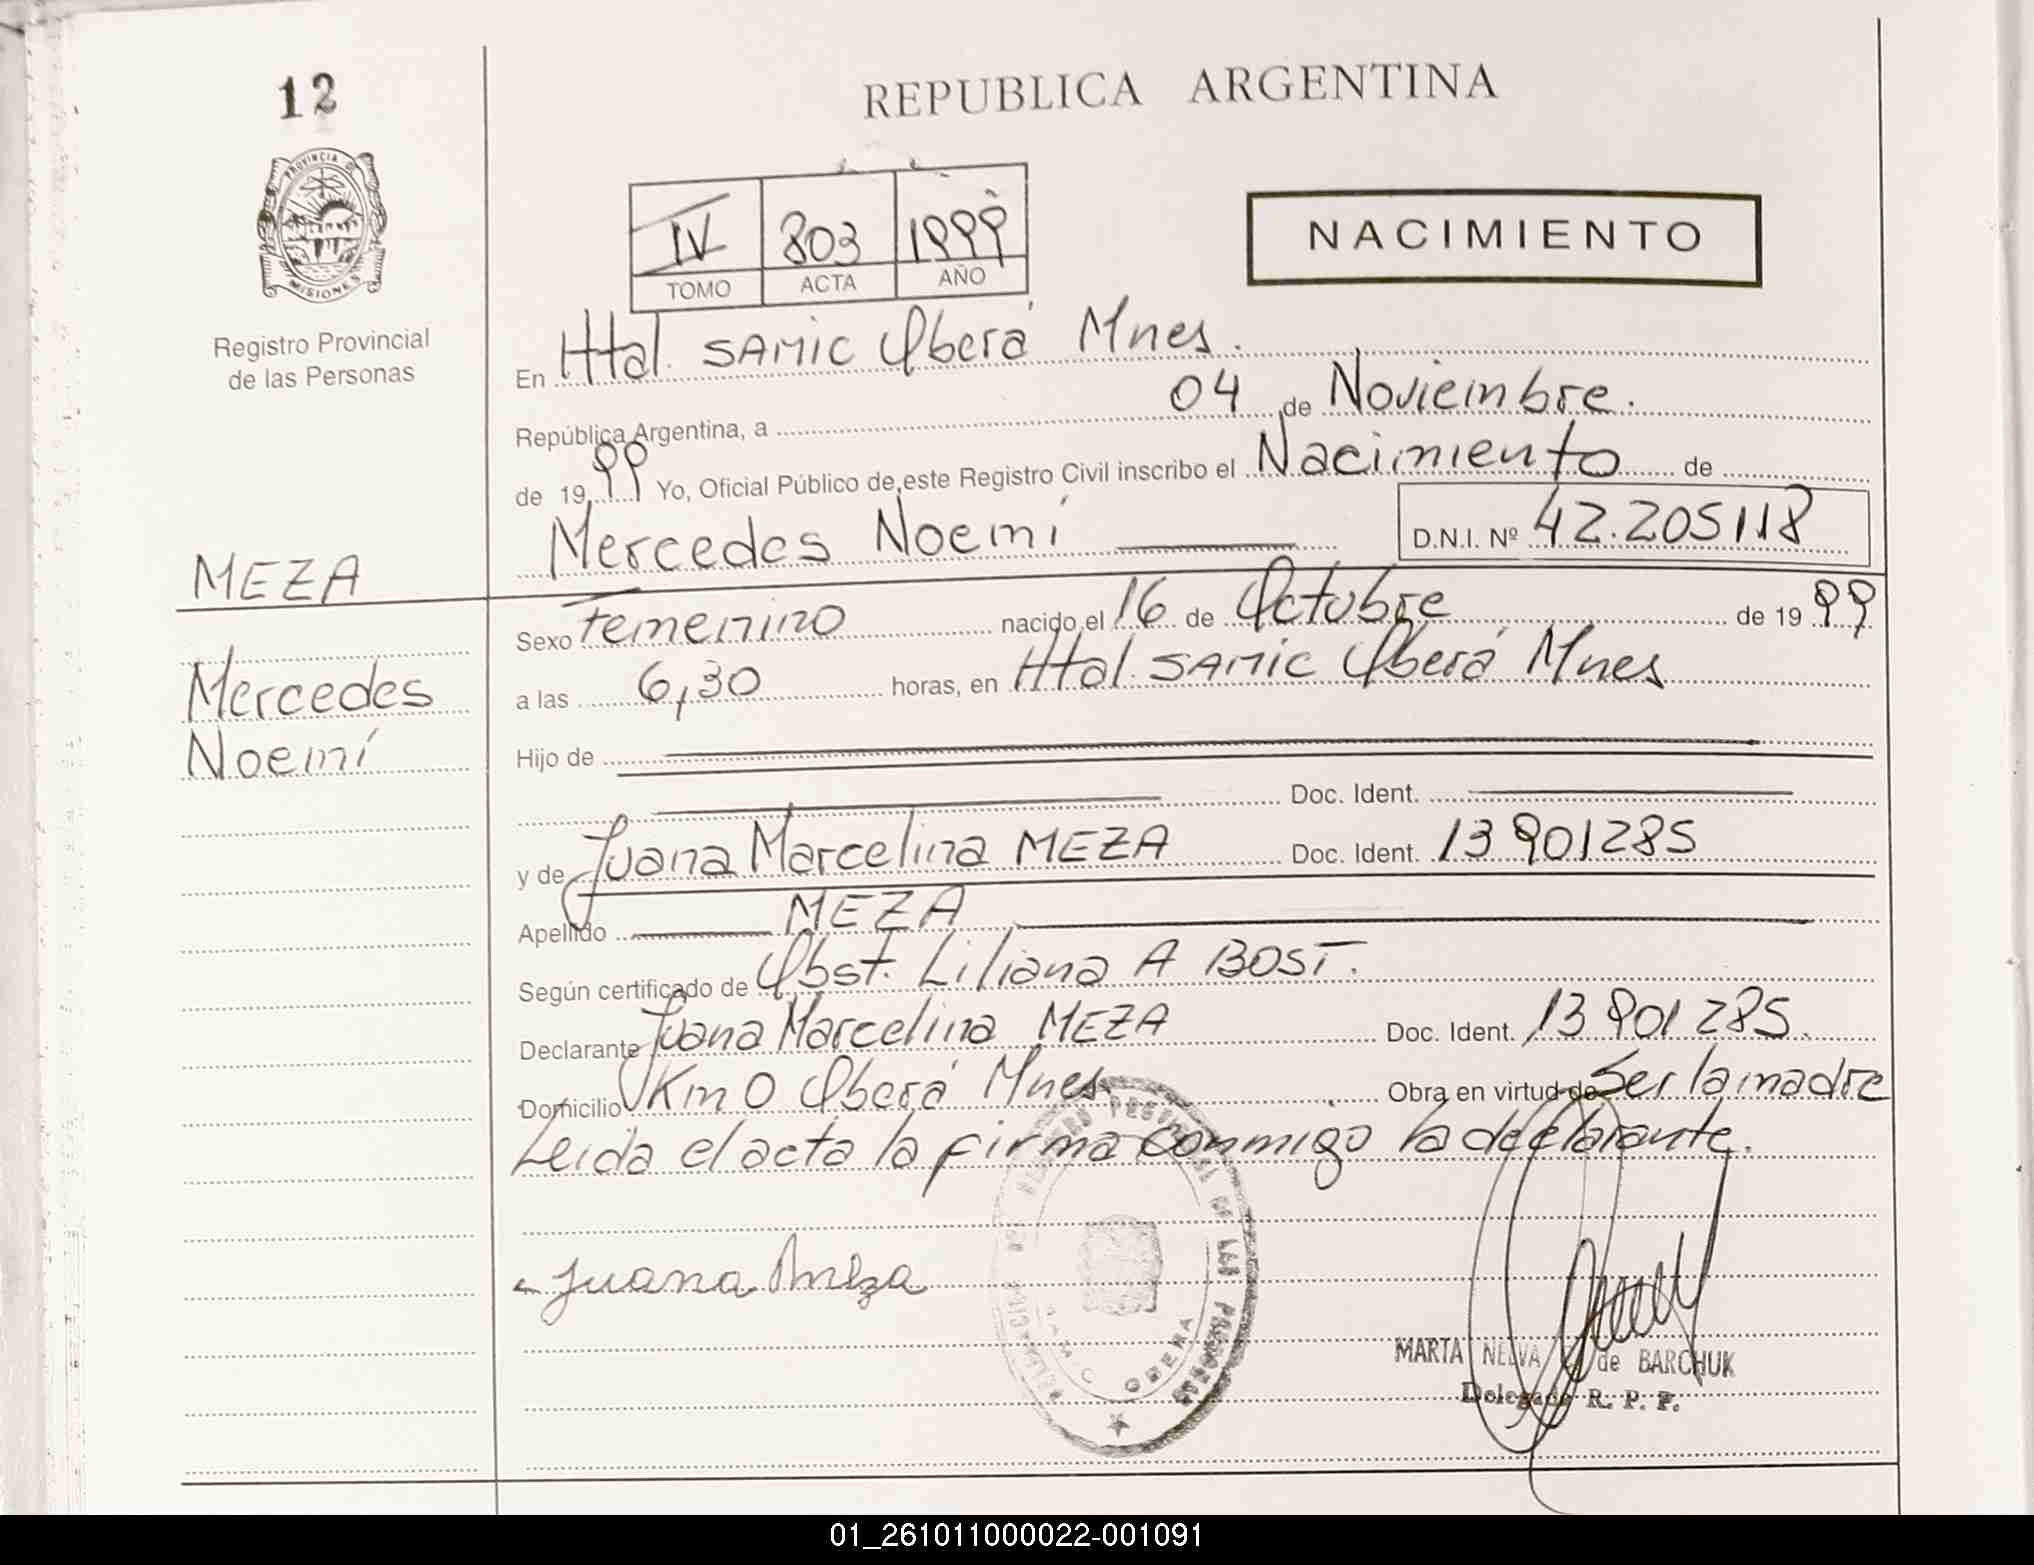 12
REPUBLICA ARGENTINA
PROVINCIA DE
MISIONES
Registro Provincial
de las Personas
IV 803 1999
TOMO ACTA AÑO
NACIMIENTO
En Htal. SAMIC Oberá Mnes.
República Argentina, a 04 de Noviembre.
de 19 99 Yo, Oficial Público de este Registro Civil inscribo el Nacimiento de
Mercedes Noemí D.N.I. Nº 42.205118
MEZA
Mercedes
Noemí
Sexo Femenino nacido el 16 de Octubre de 19 99
a las 6,30 horas, en Htal. SAMIC Oberá Mnes
Hijo de
Doc. Ident.
y de Juana Marcelina MEZA Doc. Ident. 13 901285
Apellido MEZA
Según certificado de Obst. Liliana A BOST.
Declarante Juana Marcelina MEZA Doc. Ident. 13 901 285.
Domicilio Km 0 Oberá Mnes Obra en virtud de Ser la madre
Leida el acta la firma conmigo la declarante.
Juana Meza
OBERA
MARTA NELVA de BARCHUK
Delegado R. P. P.
01_261011000022-001091